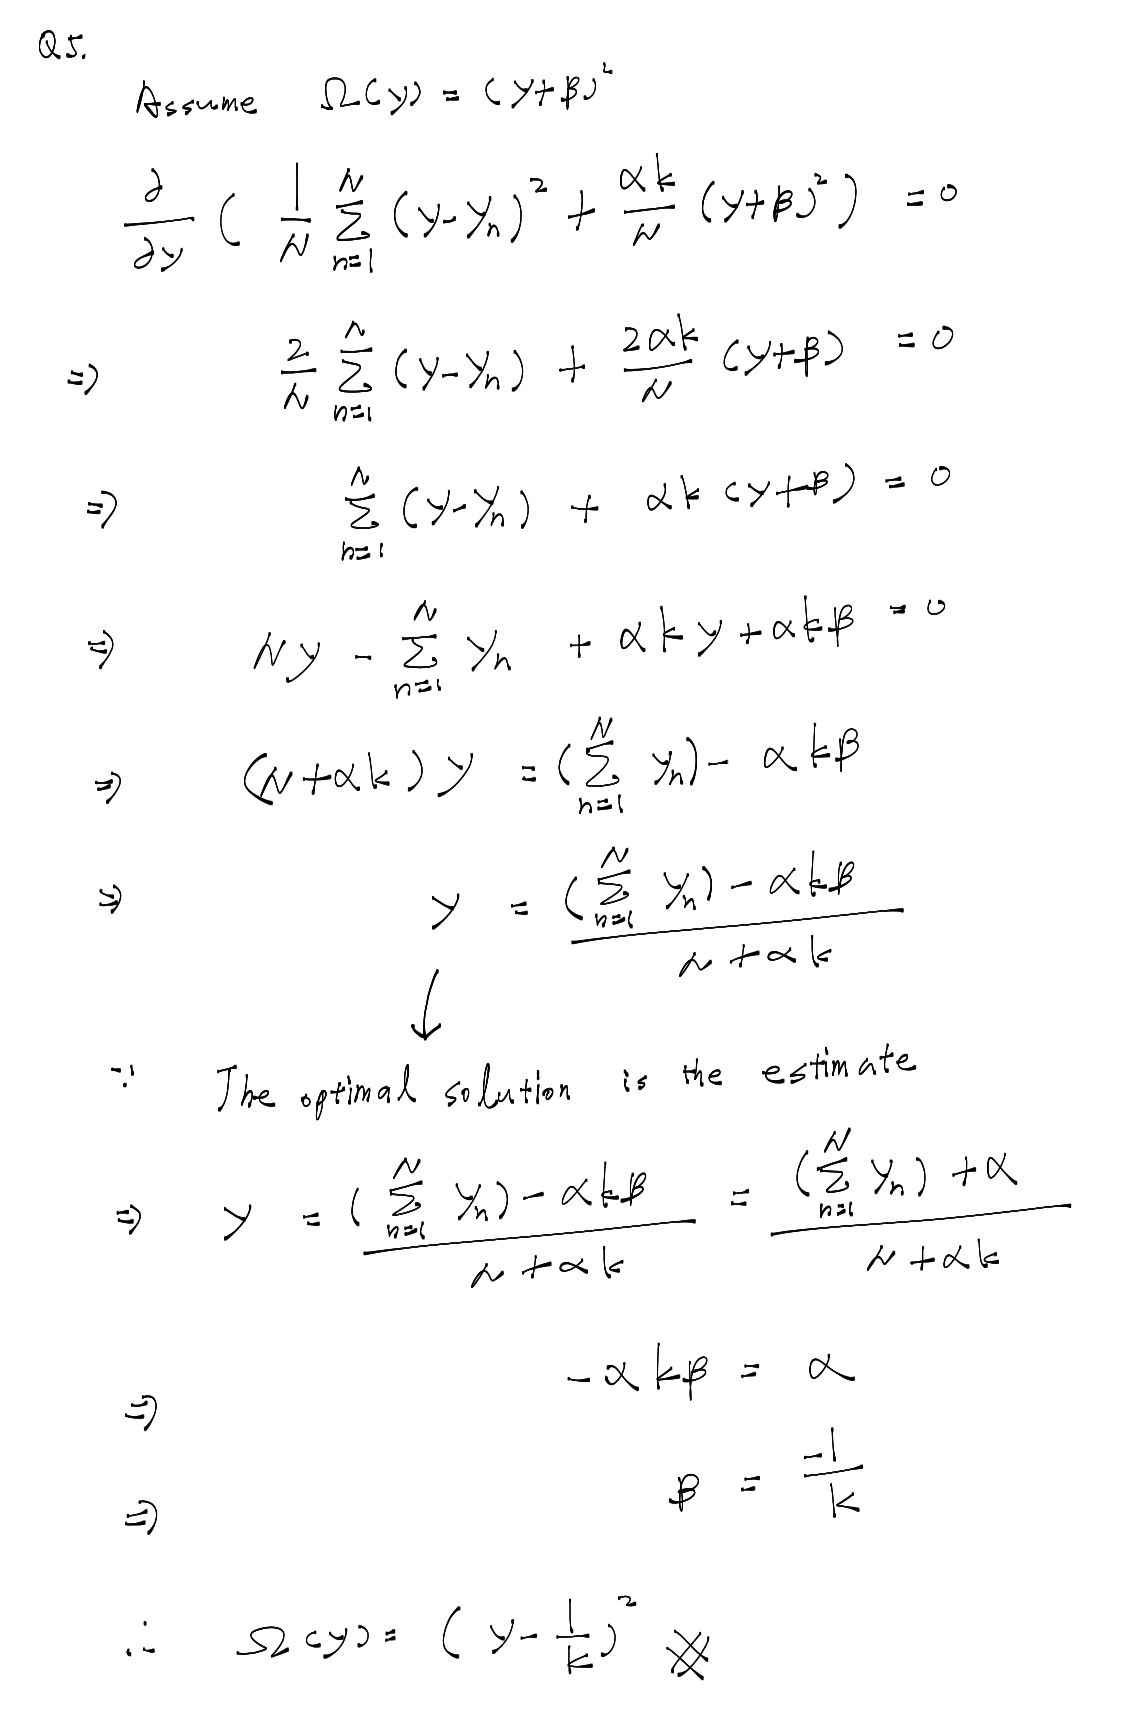 Q5.
Assume Ω(y) = (y+β)²
∂/∂y ( 1/N Σ_{n=1}^{N} (y-yₙ)² + αk/N (y+β)² ) = 0
⇒ 2/N Σ_{n=1}^{N} (y-yₙ) + 2αk/N (y+β) = 0
⇒ Σ_{n=1}^{N} (y-yₙ) + αk (y+β) = 0
⇒ Ny - Σ_{n=1}^{N} yₙ + αky + αkβ = 0
⇒ (N+αk) y = (Σ_{n=1}^{N} yₙ) - αkβ
⇒ y = ((Σ_{n=1}^{N} yₙ) - αkβ) / (N+αk)
↓
∵ The optimal solution is the estimate
⇒ y = ((Σ_{n=1}^{N} yₙ) - αkβ) / (N+αk) = ((Σ_{n=1}^{N} yₙ) + α) / (N+αk)
⇒ -αkβ = α
⇒ β = -1/k
∴ Ω(y) = (y - 1/k)² ※